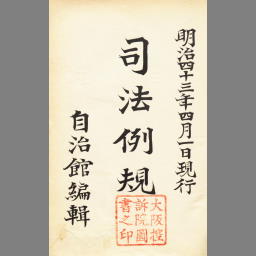 明治四十三年四月一日現行
司法例規
自治館編輯
大阪控
訴院圖
書之印